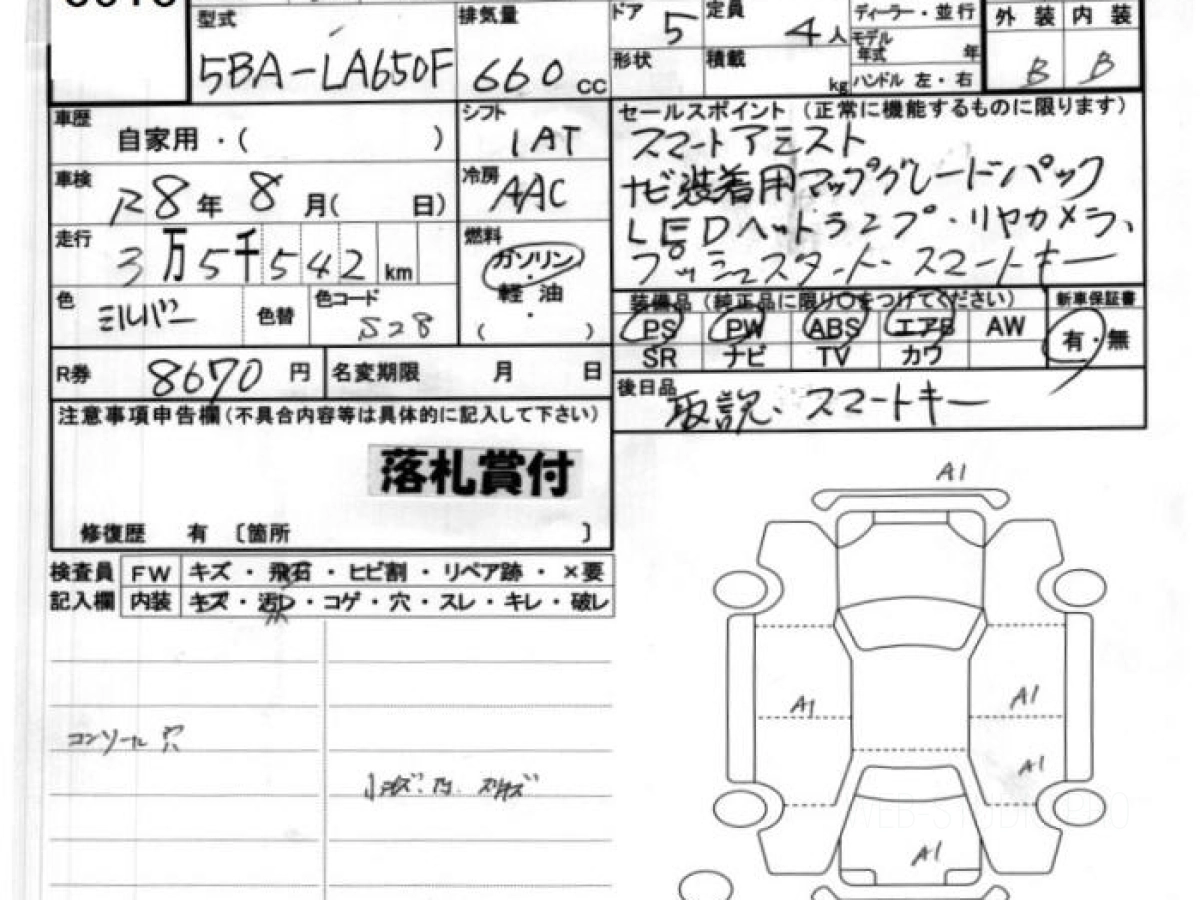 型式 排気量 ドア 5 定員 4人 ディーラー・並行 外装 内装
5BA-LA650F 660cc モデル年式 年
形状 積載 kg ハンドル 左・右 B B
車歴 自家用・( ) シフト IAT
セールスポイント (正常に機能するものに限ります)
スマートアシスト
車検 R8年8月( 日) 冷房 AAC
ナビ装着用アップグレードパック
走行 3万5千542km 燃料 ガソリン・軽油・( )
LEDヘッドランプ・リヤカメラ、
プッシュスタート・スマートキー
色 シルバー 色替 色コード S28
装備品 (純正品に限り〇をつけてください) 新車保証書
PS PW ABS エアB AW 有・無
SR ナビ TV カワ
R券 8670円 名変期限 月 日
後日品 取説、スマートキー
注意事項申告欄(不具合内容等は具体的に記入して下さい)
落札賞付
修復歴 有 〔箇所 〕
検査員 FW キズ・飛石・ヒビ割・リペア跡・×要
記入欄 内装 キズ・汚レ・コゲ・穴・スレ・キレ・破レ
コンソール穴
小キズ
A1
A1
A1
A1
A1